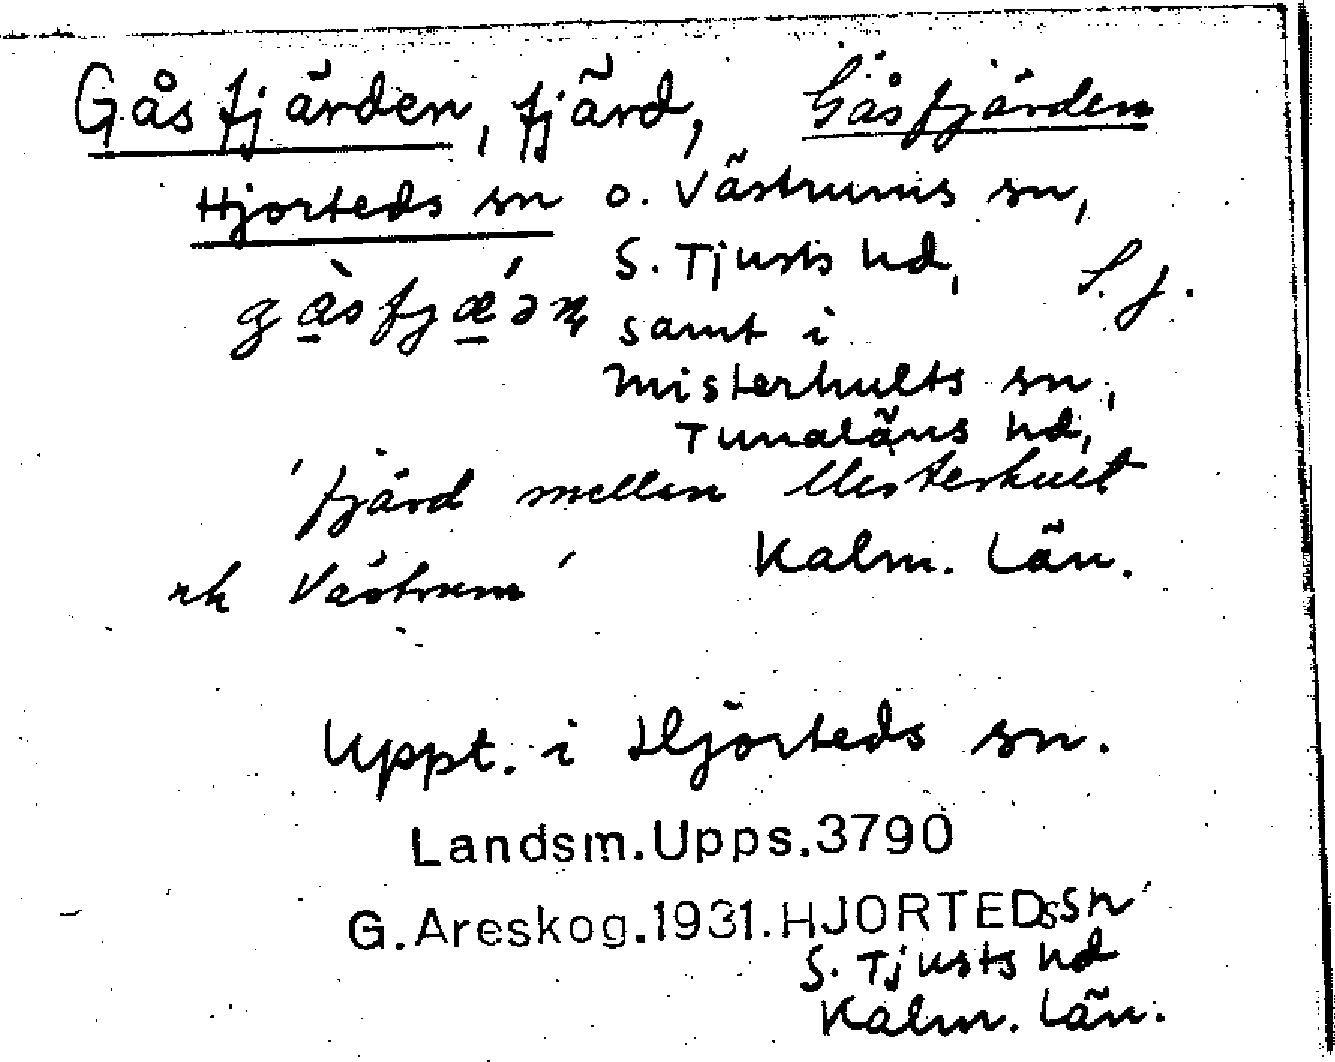 Gåsfjärden, fjärd, Gåsfjärden
Hjorteds sn o. Västrums sn,
S. Tjusts hd, S. j.
gàsfjǽən samt i
Misterhults sn,
Tunaläns hd,
'fjärd mellan Misterhult
Kalm. län.
och Västrum'
Uppt. i Hjorteds sn.
Landsm.Upps.3790
G.Areskog.1931.HJORTEDs sn
S. Tjusts hd
Kalm. län.